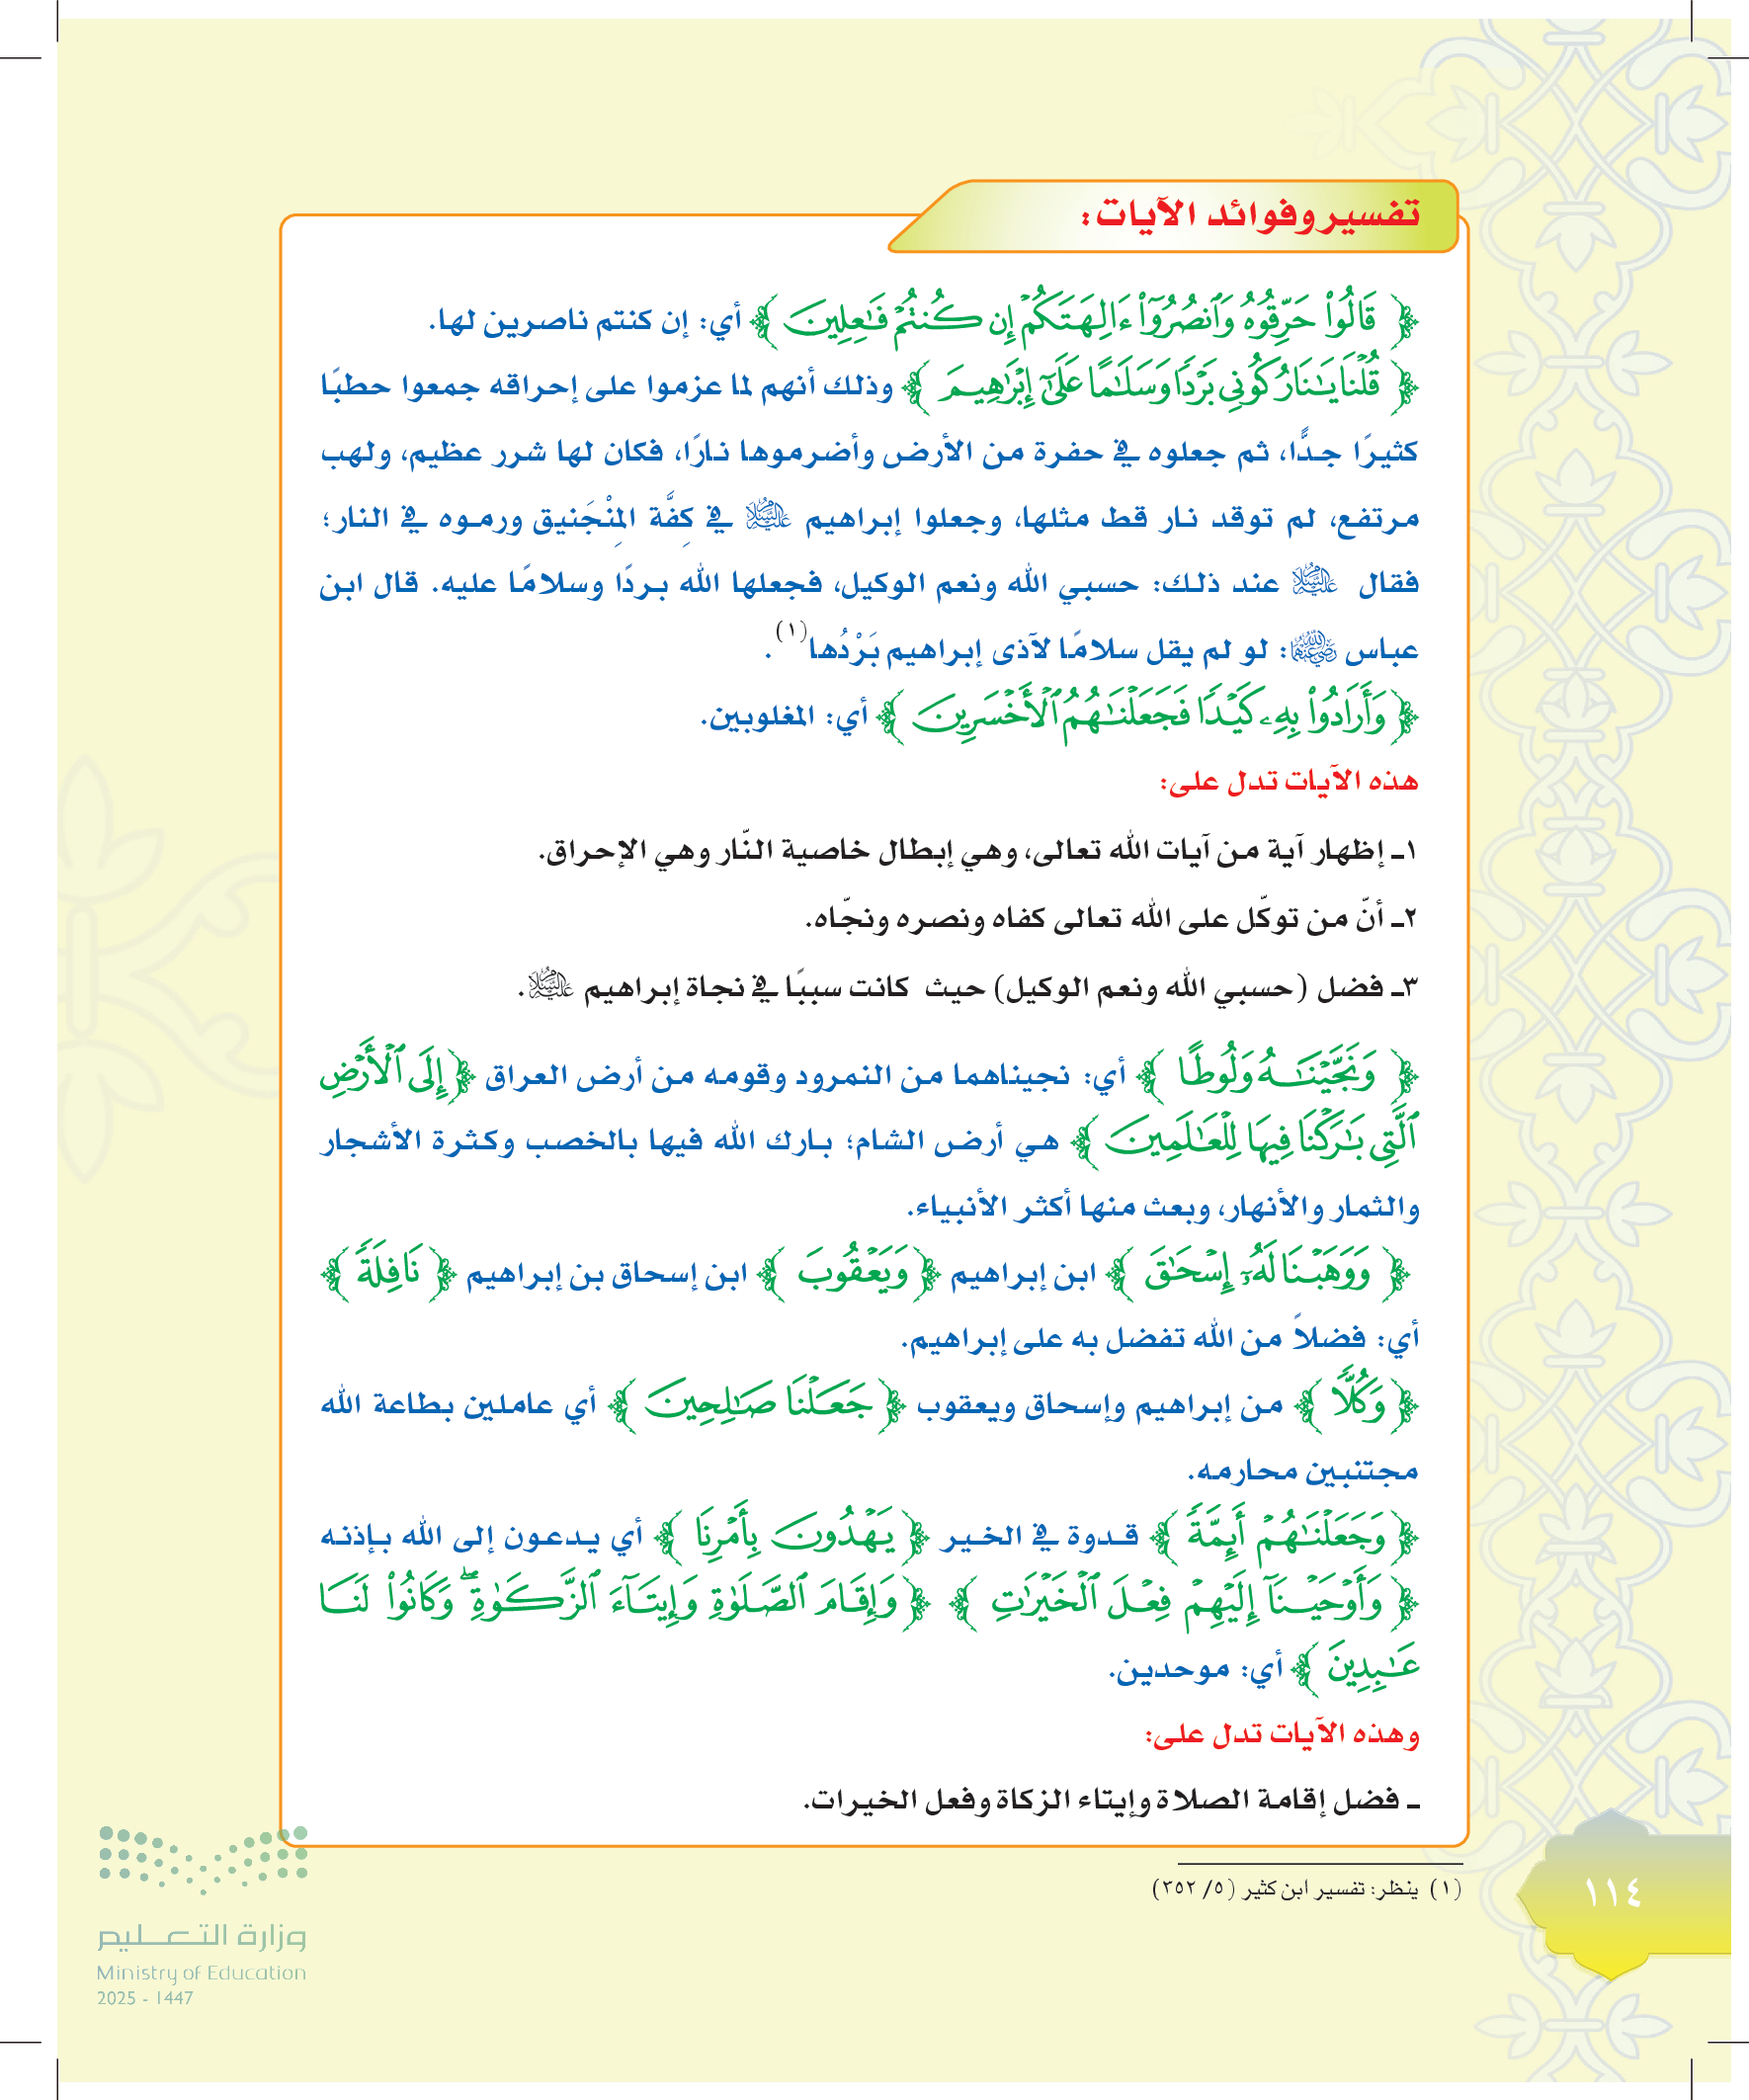 تفسير وفوائد الآيات:
﴿ قَالُوا۟ حَرِّقُوهُ وَٱنصُرُوٓا۟ ءَالِهَتَكُمْ إِن كُنتُمْ فَٰعِلِينَ ﴾ أي: إن كنتم ناصرين لها.
﴿ قُلْنَا يَٰنَارُ كُونِى بَرْدًا وَسَلَٰمًا عَلَىٰٓ إِبْرَٰهِيمَ ﴾ وذلك أنهم لما عزموا على إحراقه جمعوا حطبًا
كثيرًا جدًّا، ثم جعلوه في حفرة من الأرض وأضرموها نارًا، فكان لها شرر عظيم، ولهب
مرتفع، لم توقد نار قط مثلها، وجعلوا إبراهيم عليه السلام في كِفَّة المِنْجَنيق ورموه في النار؛
فقال عليه السلام عند ذلك: حسبي الله ونعم الوكيل، فجعلها الله بردًا وسلامًا عليه. قال ابن
عباس رضي الله عنهما: لو لم يقل سلامًا لآذى إبراهيم بَرْدُها(١).
﴿ وَأَرَادُوا۟ بِهِۦ كَيْدًا فَجَعَلْنَٰهُمُ ٱلْأَخْسَرِينَ ﴾ أي: المغلوبين.
هذه الآيات تدل على:
١ـ إظهار آية من آيات الله تعالى، وهي إبطال خاصية النّار وهي الإحراق.
٢ـ أنّ من توكّل على الله تعالى كفاه ونصره ونجّاه.
٣ـ فضل (حسبي الله ونعم الوكيل) حيث كانت سببًا في نجاة إبراهيم عليه السلام.
﴿ وَنَجَّيْنَٰهُ وَلُوطًا ﴾ أي: نجيناهما من النمرود وقومه من أرض العراق ﴿ إِلَى ٱلْأَرْضِ
ٱلَّتِى بَٰرَكْنَا فِيهَا لِلْعَٰلَمِينَ ﴾ هي أرض الشام؛ بارك الله فيها بالخصب وكثرة الأشجار
والثمار والأنهار، وبعث منها أكثر الأنبياء.
﴿ وَوَهَبْنَا لَهُۥٓ إِسْحَٰقَ ﴾ ابن إبراهيم ﴿ وَيَعْقُوبَ ﴾ ابن إسحاق بن إبراهيم ﴿ نَافِلَةً ﴾
أي: فضلاً من الله تفضل به على إبراهيم.
﴿ وَكُلًّا ﴾ من إبراهيم وإسحاق ويعقوب ﴿ جَعَلْنَا صَٰلِحِينَ ﴾ أي عاملين بطاعة الله
مجتنبين محارمه.
﴿ وَجَعَلْنَٰهُمْ أَئِمَّةً ﴾ قدوة في الخير ﴿ يَهْدُونَ بِأَمْرِنَا ﴾ أي يدعون إلى الله بإذنه
﴿ وَأَوْحَيْنَآ إِلَيْهِمْ فِعْلَ ٱلْخَيْرَٰتِ ﴾ ﴿ وَإِقَامَ ٱلصَّلَوٰةِ وَإِيتَآءَ ٱلزَّكَوٰةِ ۖ وَكَانُوا۟ لَنَا
عَٰبِدِينَ ﴾ أي: موحدين.
وهذه الآيات تدل على:
ـ فضل إقامة الصلاة وإيتاء الزكاة وفعل الخيرات.
(١) ينظر: تفسير ابن كثير (٥/ ٣٥٢)
١١٤
وزارة التعليم
Ministry of Education
2025 - 1447